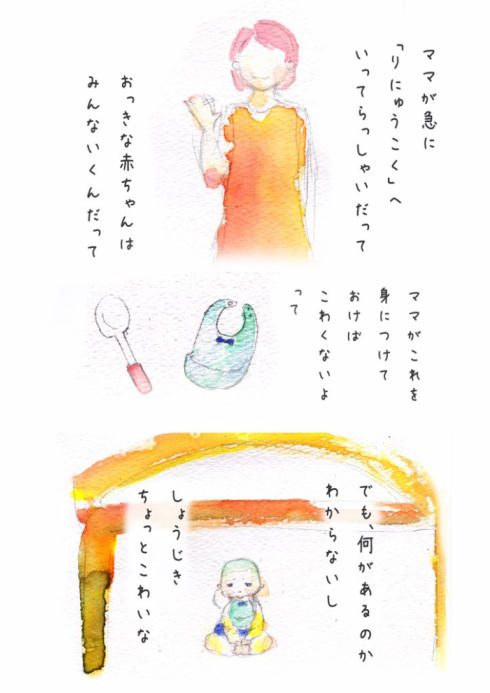 ママが急に
「りにゅうこく」へ
いってらっしゃいだって
おっきな赤ちゃんは
みんないくんだって
ママがこれを
身につけて
おけば
こわくないよ
って
でも、何があるのか
わからないし
しょうじき
ちょっとこわいな